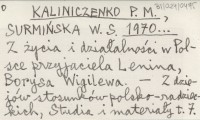 D KALINICZENKO P. M., 81/024/0495
SURMIŃSKA W. S. 1970...
Z życia i działalności w Pol-
sce przyjaciela Lenina,
Borysa Wigilewa. – Z dzie-
jów stosunków polsko-radziec-
kich, Studia i materiały t. 7.